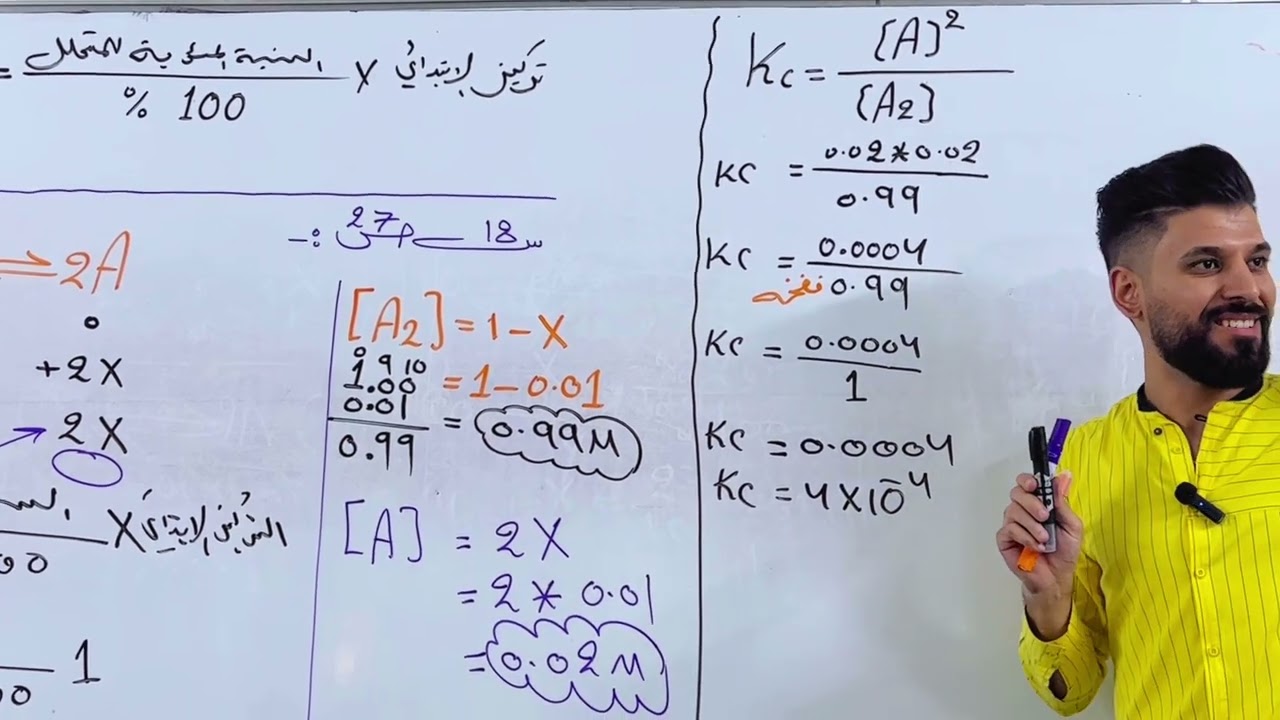 = النسبة المئوية للمتحلل / 100 % X تركيز الابتدائي
س 18 ص 27 :-
⇌ 2A
0
+2X
2X
X التركيز الابتدائي
1
[A2] = 1 - X
0 9 10
1.00 = 1 - 0.01
0.01
0.99 = 0.99M
[A] = 2X
= 2 * 0.01
= 0.02M
Kc = [A]² / [A2]
Kc = 0.02*0.02 / 0.99
Kc = 0.0004 / 0.99
Kc = 0.0004 / 1
Kc = 0.0004
Kc = 4X10⁻⁴